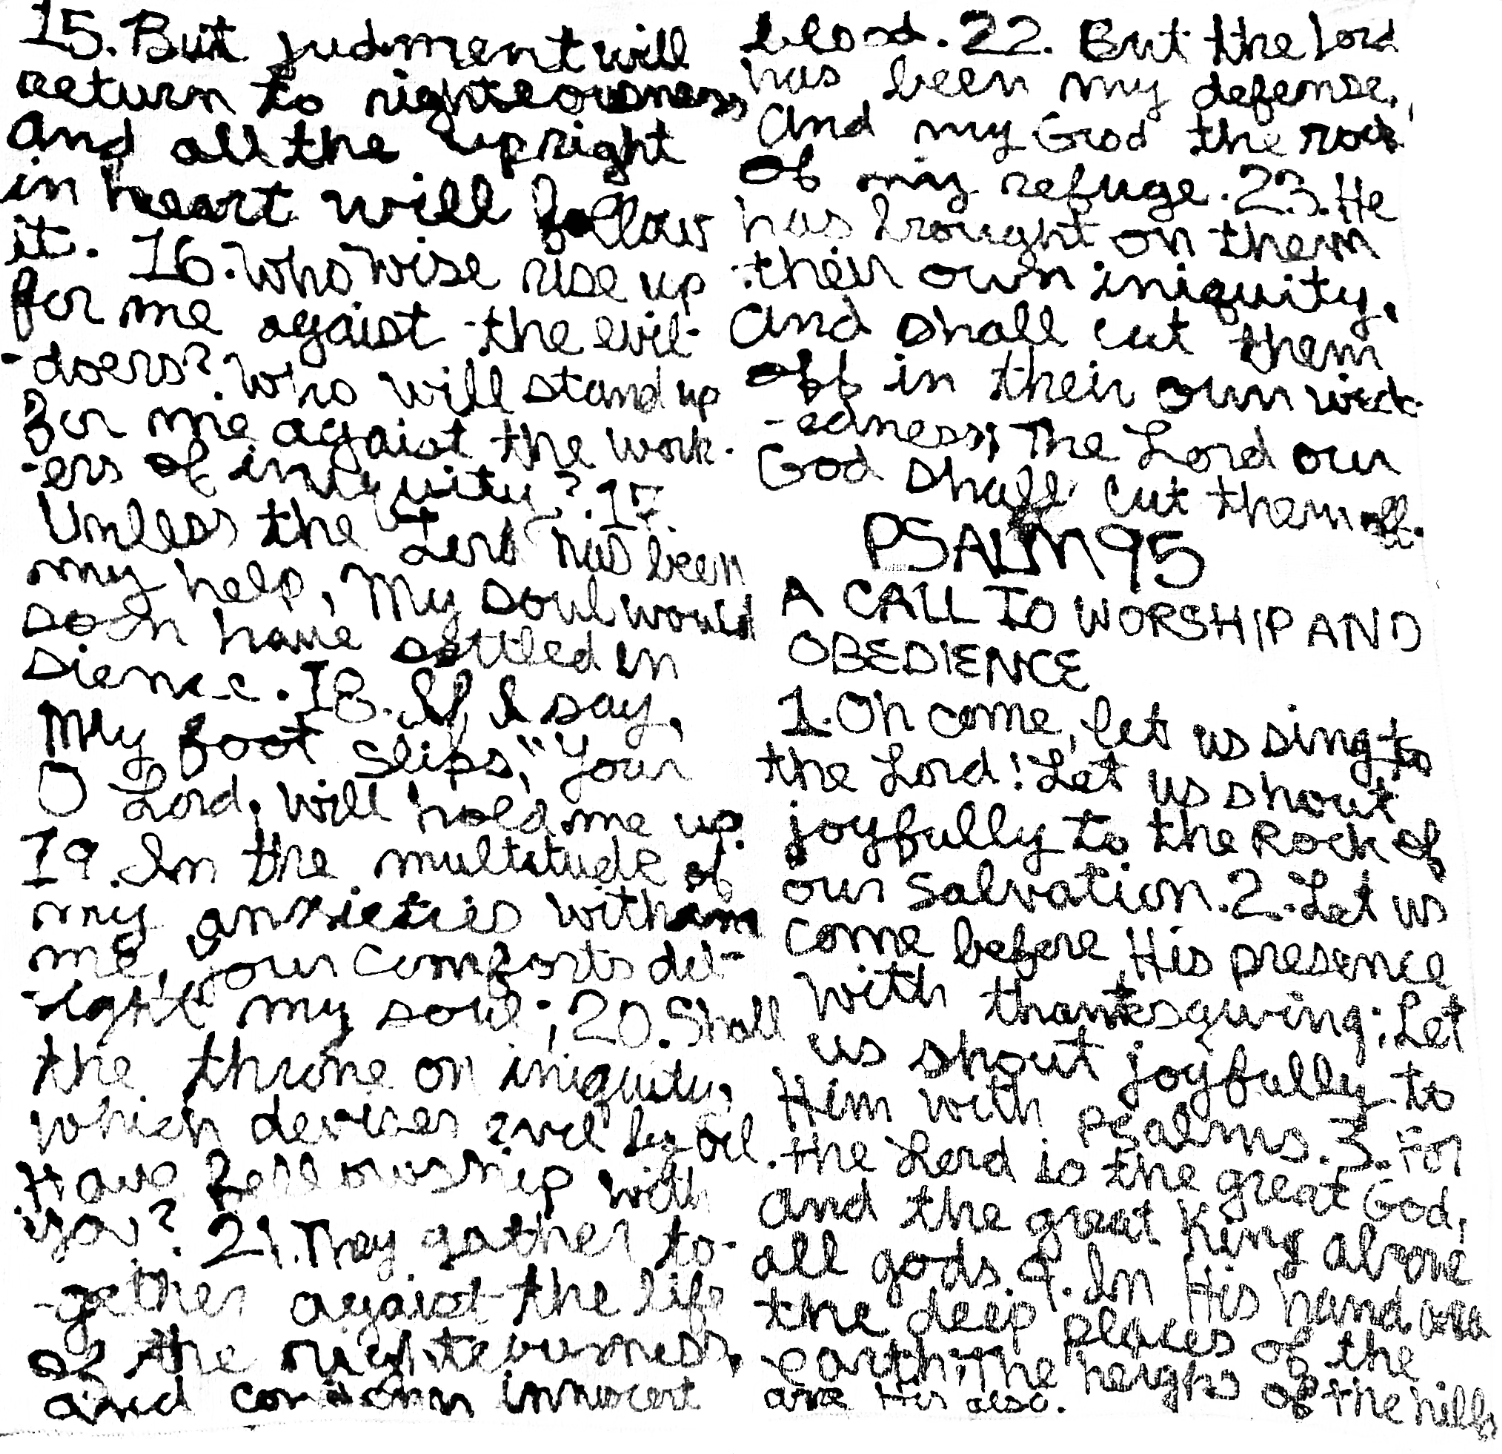 15. But judment will
return to righteousness,
and all the upright
in heart will follow
it. 16. Who wise rise up
for me agaist the evil-
-doers? Who will stand up
for me agaist the work-
-ers of iniquity? 17.
Unless the Lord has been
my help, My soul would
soon have settled in
sience. 18. If I say,
My foot slips," Your
O Lord, will hold me up.
19. In the multitude of
my anxieties within
me, your comforts del-
-ight my soul; 20. Shall
the throne on iniquity,
which devises evil by
Have fellowship with
you? 21. They gather to-
-gether agaist the life
of the righteousness,
and condemn innocent
blood. 22. But the Lord
has been my defense,
And my God the rock
Of my refuge. 23. He
has brought on them
their own iniquity,
And shall cut them
off in their own wick-
-edness; The Lord our
God shall cut them off.
PSALM 95
A CALL TO WORSHIP AND
OBEDIENCE
1. Oh come, let us sing to
the Lord! Let us shout
joyfully to the Rock of
our salvation. 2. Let us
come before His presence
with thanksgiving; Let
us shout joyfully to
Him with Psalms. 3. For
the Lord is the great God,
And the great King above
all gods. 4. In His hand are
the deep places of the
earth; The heighs of the hills
are His also.